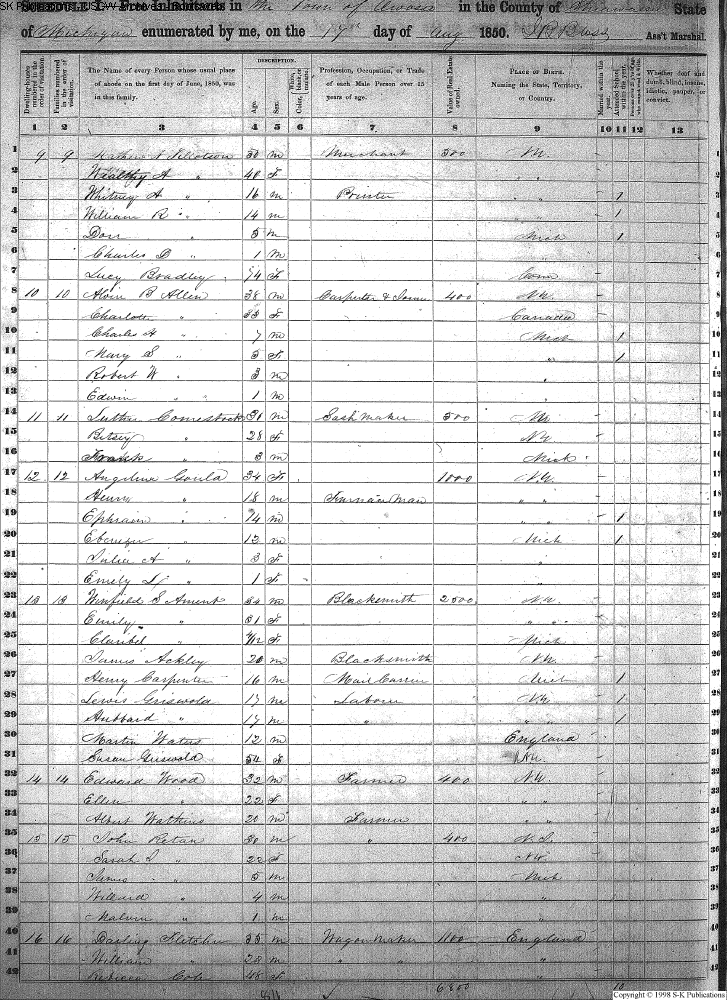 SCHEDULE I. Free Inhabitants in the Town of Owosso in the County of Shiawassee State
of Michigan enumerated by me, on the 19th day of Aug 1850. Ass't Marshal.
Dwelling-houses numbered in the order of visitation. Families numbered in the order of visitation. The Name of every Person whose usual place of abode on the first day of June, 1850, was in this family. DESCRIPTION. Age. Sex. White, black, or mulatto. Color, Profession, Occupation, or Trade of each Male Person over 15 years of age. Value of Real Estate owned. PLACE OF BIRTH. Naming the State, Territory, or Country. Married within the year. Attended School within the year. Whether deaf and dumb, blind, insane, idiotic, pauper, or convict.
1 2 3 4 5 6 7 8 9 10 11 12 13
1 9 9 Tillotson 50 m Merchant 500
2 Wealthy A " 40 f
3 Whitney A " 16 m Printer " " 1
4 William R " 14 m 1
5 Dorr " 5 m Mich 1
6 Charles D " 1 m
7 Lucy Bradley 74 f Conn
8 10 10 Alvin B Allen 38 m Carpenter & Joiner 400 NY
9 Charlotte " 33 f Canada
10 Charles H " 7 m Mich 1
11 Mary S " 5 f " 1
12 Robert W " 3 m "
13 Edwin " 1 m "
14 11 11 Luther Comestock 31 m Sash maker 500
15 Betsey " 28 f NY
16 Frank " 3 m Mich
17 12 12 Angeline Gould 34 f 1000 NY
18 Henry " 18 m Furnace Man " "
19 Ephraim " 14 m " " 1
20 Ebenezer " 12 m Mich 1
21 Julia A " 3 f "
22 Emely " 1 f "
23 13 13 Winfield S Ament 34 m Blacksmith 2500 NY
24 Emily " 31 f " "
25 Claribel " f Mich
26 James Ackley 20 m Blacksmith NY
27 Henry Carpenter 16 m Mail Carrier Mich 1
28 Lewis Griswold 17 m Laborer NY 1
29 Hubbard " 17 m " " " 1
30 Martin Waters 12 m England
31 Susan Griswold 54 f NY
32 14 14 Edward Wood 32 m Farmer 400 NY
33 Ellen " 22 f " "
34 Albert Watkins 20 m Farmer " "
35 15 15 John Retan 30 m " 400 N.J.
36 Sarah " 22 f NY
37 James " 5 m Mich
38 Willard " 4 m "
39 Malvin " 1 m "
40 16 16 Darling Fletcher 35 m Wagon Maker 1100 England
41 William " 28 m " " "
42 Rebecca Cole 48 f
6800 10
Copyright © 1998 S-K Publications